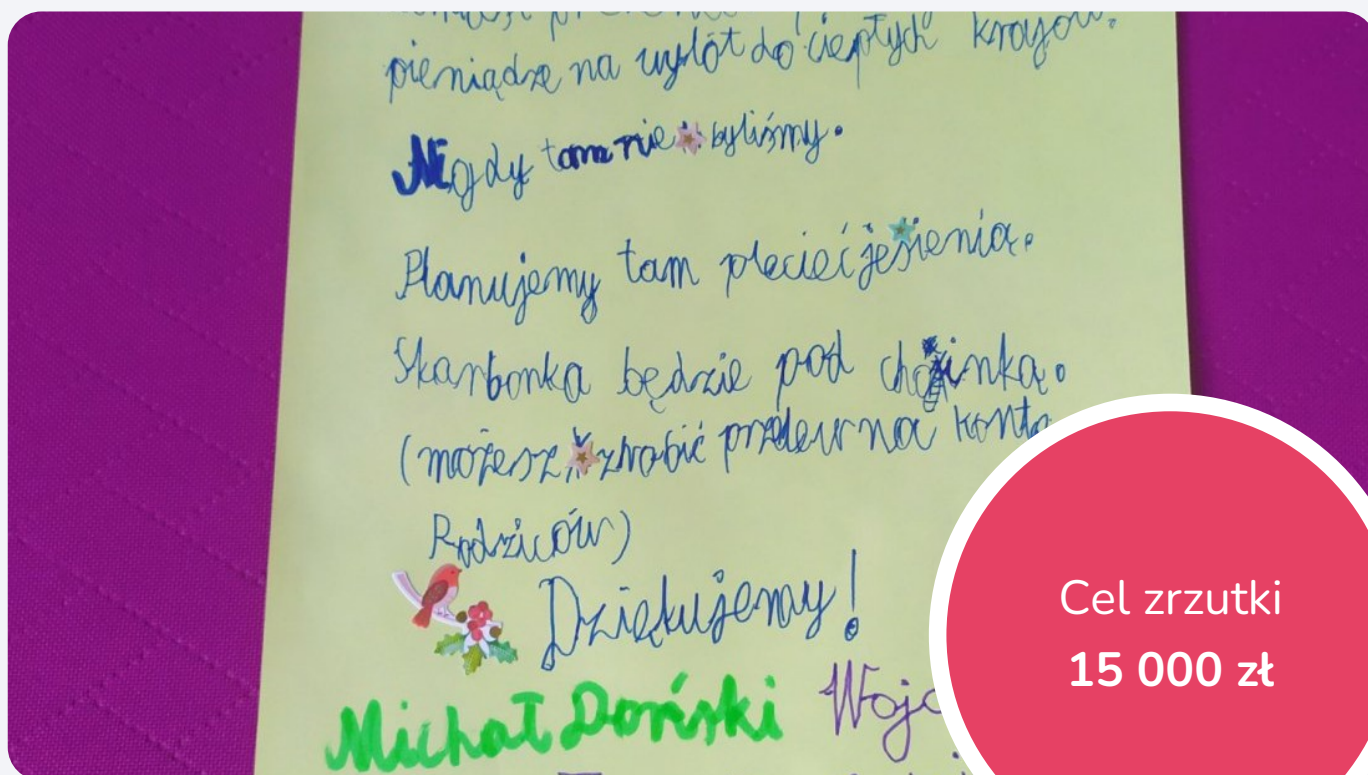 pieniądze na wylot do ciepłych krajów.
Nigdy tam nie byliśmy.
Planujemy tam plecieć jesienią.
Skarbonka będzie pod choinką.
(możesz zrobić przelew na konto
Rodziców)
Dziękujemy!
Michał Doński Wojc
Cel zrzutki
15 000 zł